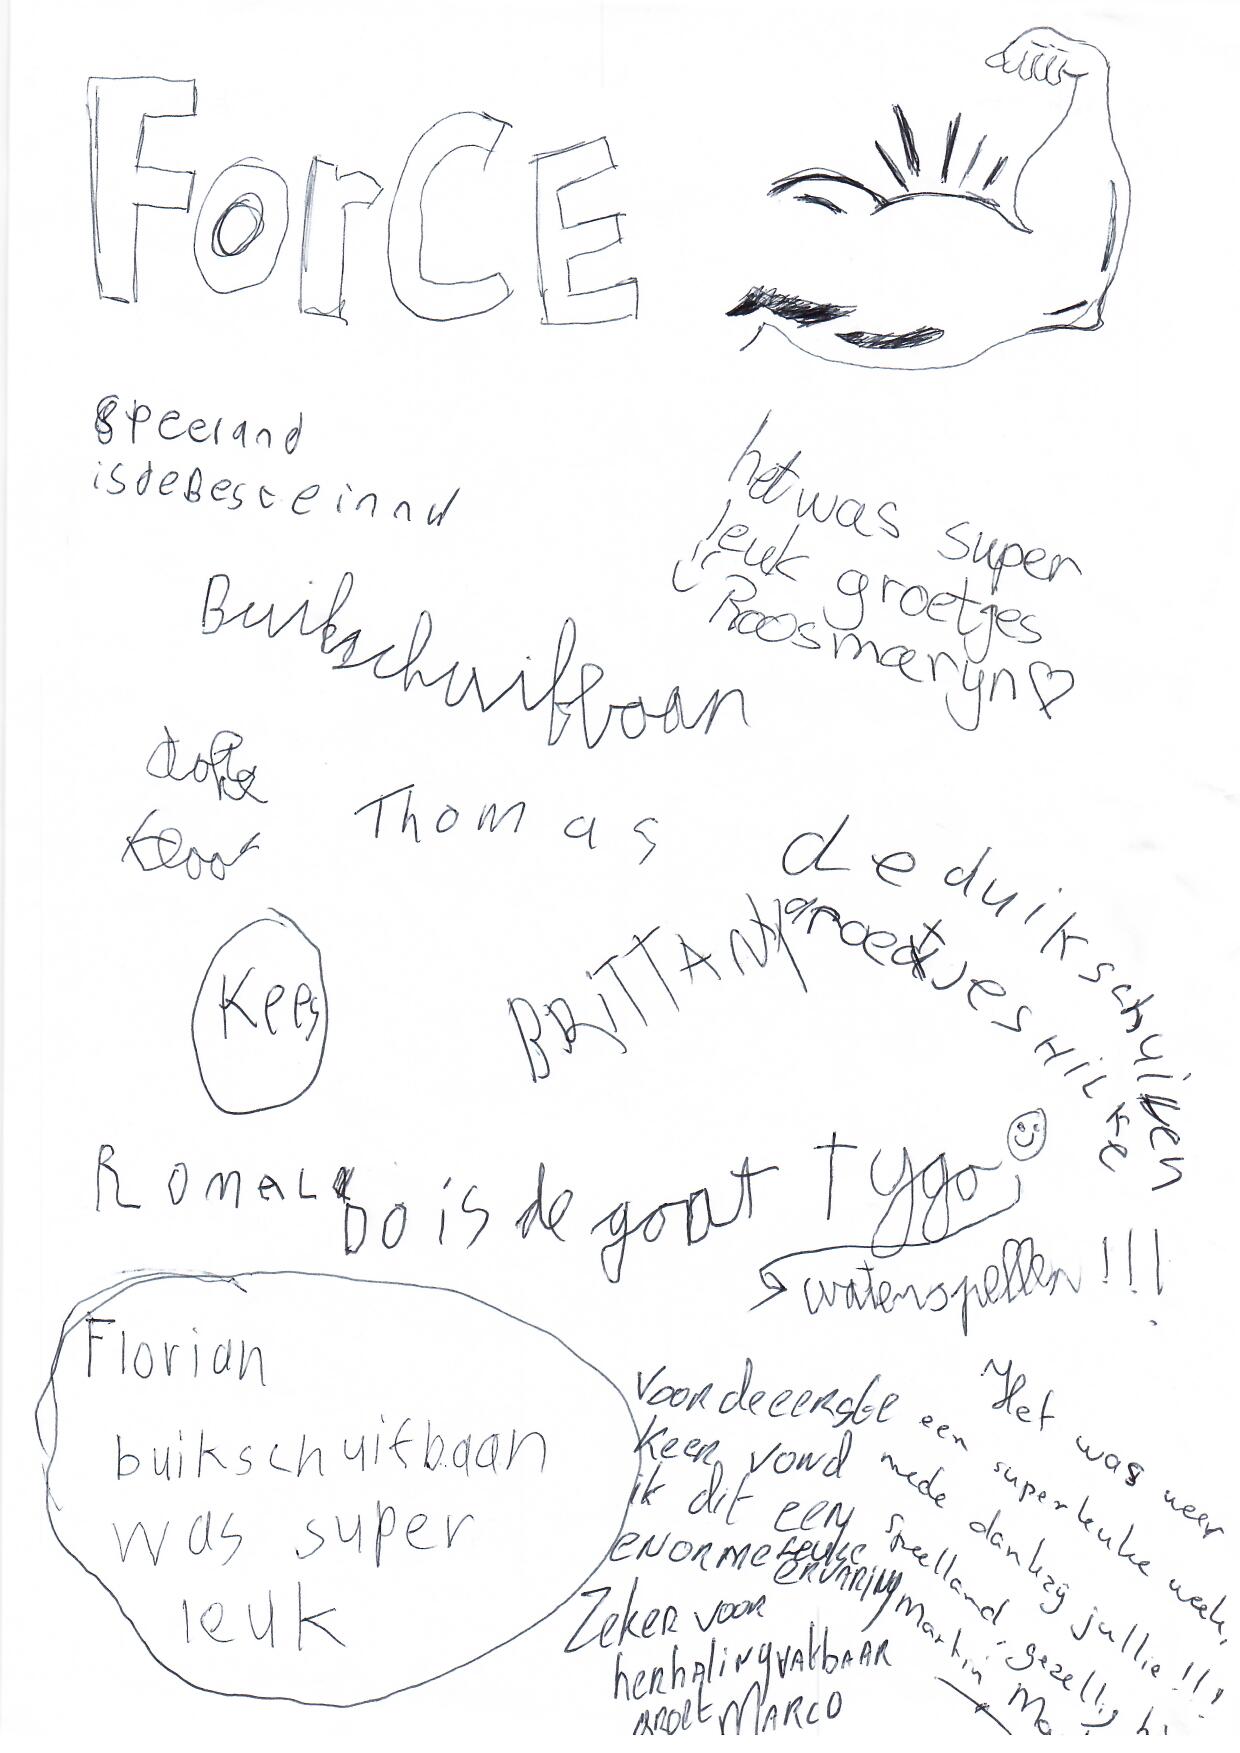 ForCE
speeland
isdeBesteinnd
het was super
leuk groetjes
Roosmarijn
Buikschuifbaan
Thomas
de duikschuiben
groetjes HILKE
BRiTTANY
Kees
RonALDO is de goat
Tygo
waterspellen!!!
Florian
buikschuifbaan
was super
leuk
Voor de eerste
keer vond
ik dit een
ENORME leuke
ERVARING
Zeker voor
herhaling vatbaar
groet MARCO
Het was weer
een superleuke week,
mede dankzij jullie!!!
Speelland: gezellig
Martin